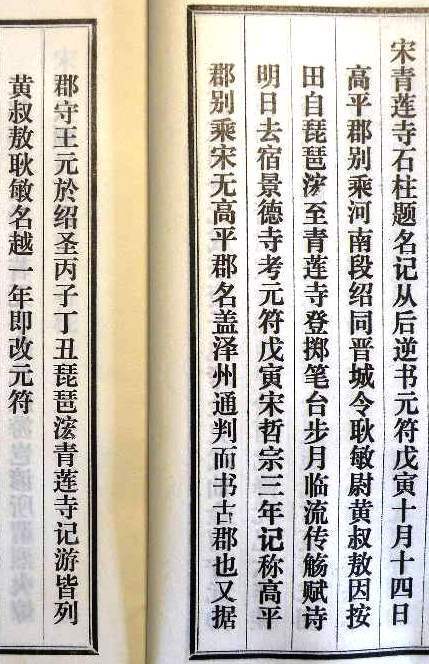 宋青莲寺石柱题名记从后逆书元符戊寅十月十四日
高平郡别乘河南段绍同晋城令耿敏尉黄叔敖因按
田自琵琶泫至青莲寺登掷笔台步月临流传觞赋诗
明日去宿景德寺考元符戊寅宋哲宗三年记称高平
郡别乘宋无高平郡名盖泽州通判而书古郡也又据
郡守王元於绍圣丙子丁丑琵琶泫青莲寺记游皆列
黄叔敖耿敏名越一年即改元符